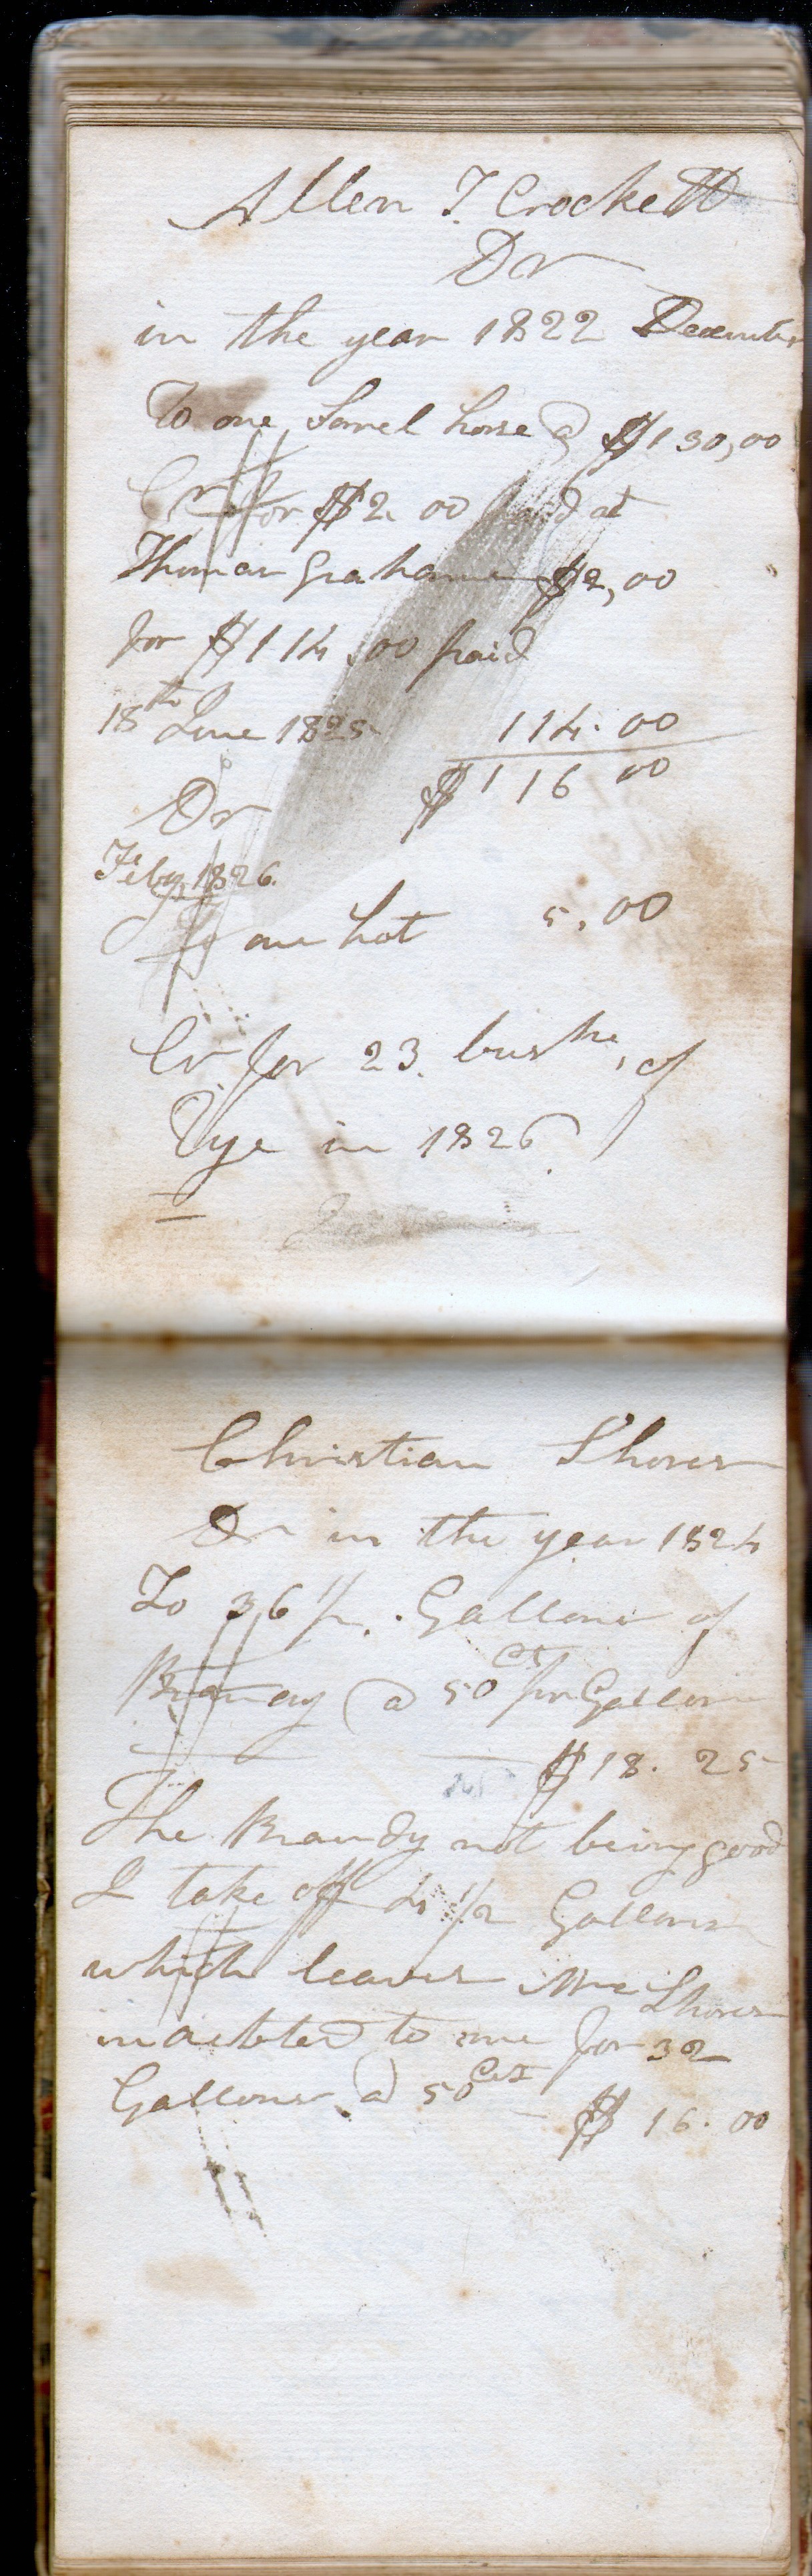 Allen T. Crockett
Dr
in the year 1822 December
To one Sorrel horse @ $130,00
Cr for $2.00 paid at
Thomas Grahams $2,00
for $114.00 paid
18th June 1825 114.00
$116 00
Dr
Feby 1826.
To one hat 5.00
Cr. for 23. bush, of
Rye in 1826.
Christian Shover
Dr in the year 1824
To 36 1/2. Gallons of
Brandy @ 50 Cts pr Gallon
$18.25
The Brandy not being good
I take off 4 1/2 Gallons
which leaves Mr Shover
indebted to me for 32
Gallons @ 50 Cts - $16.00